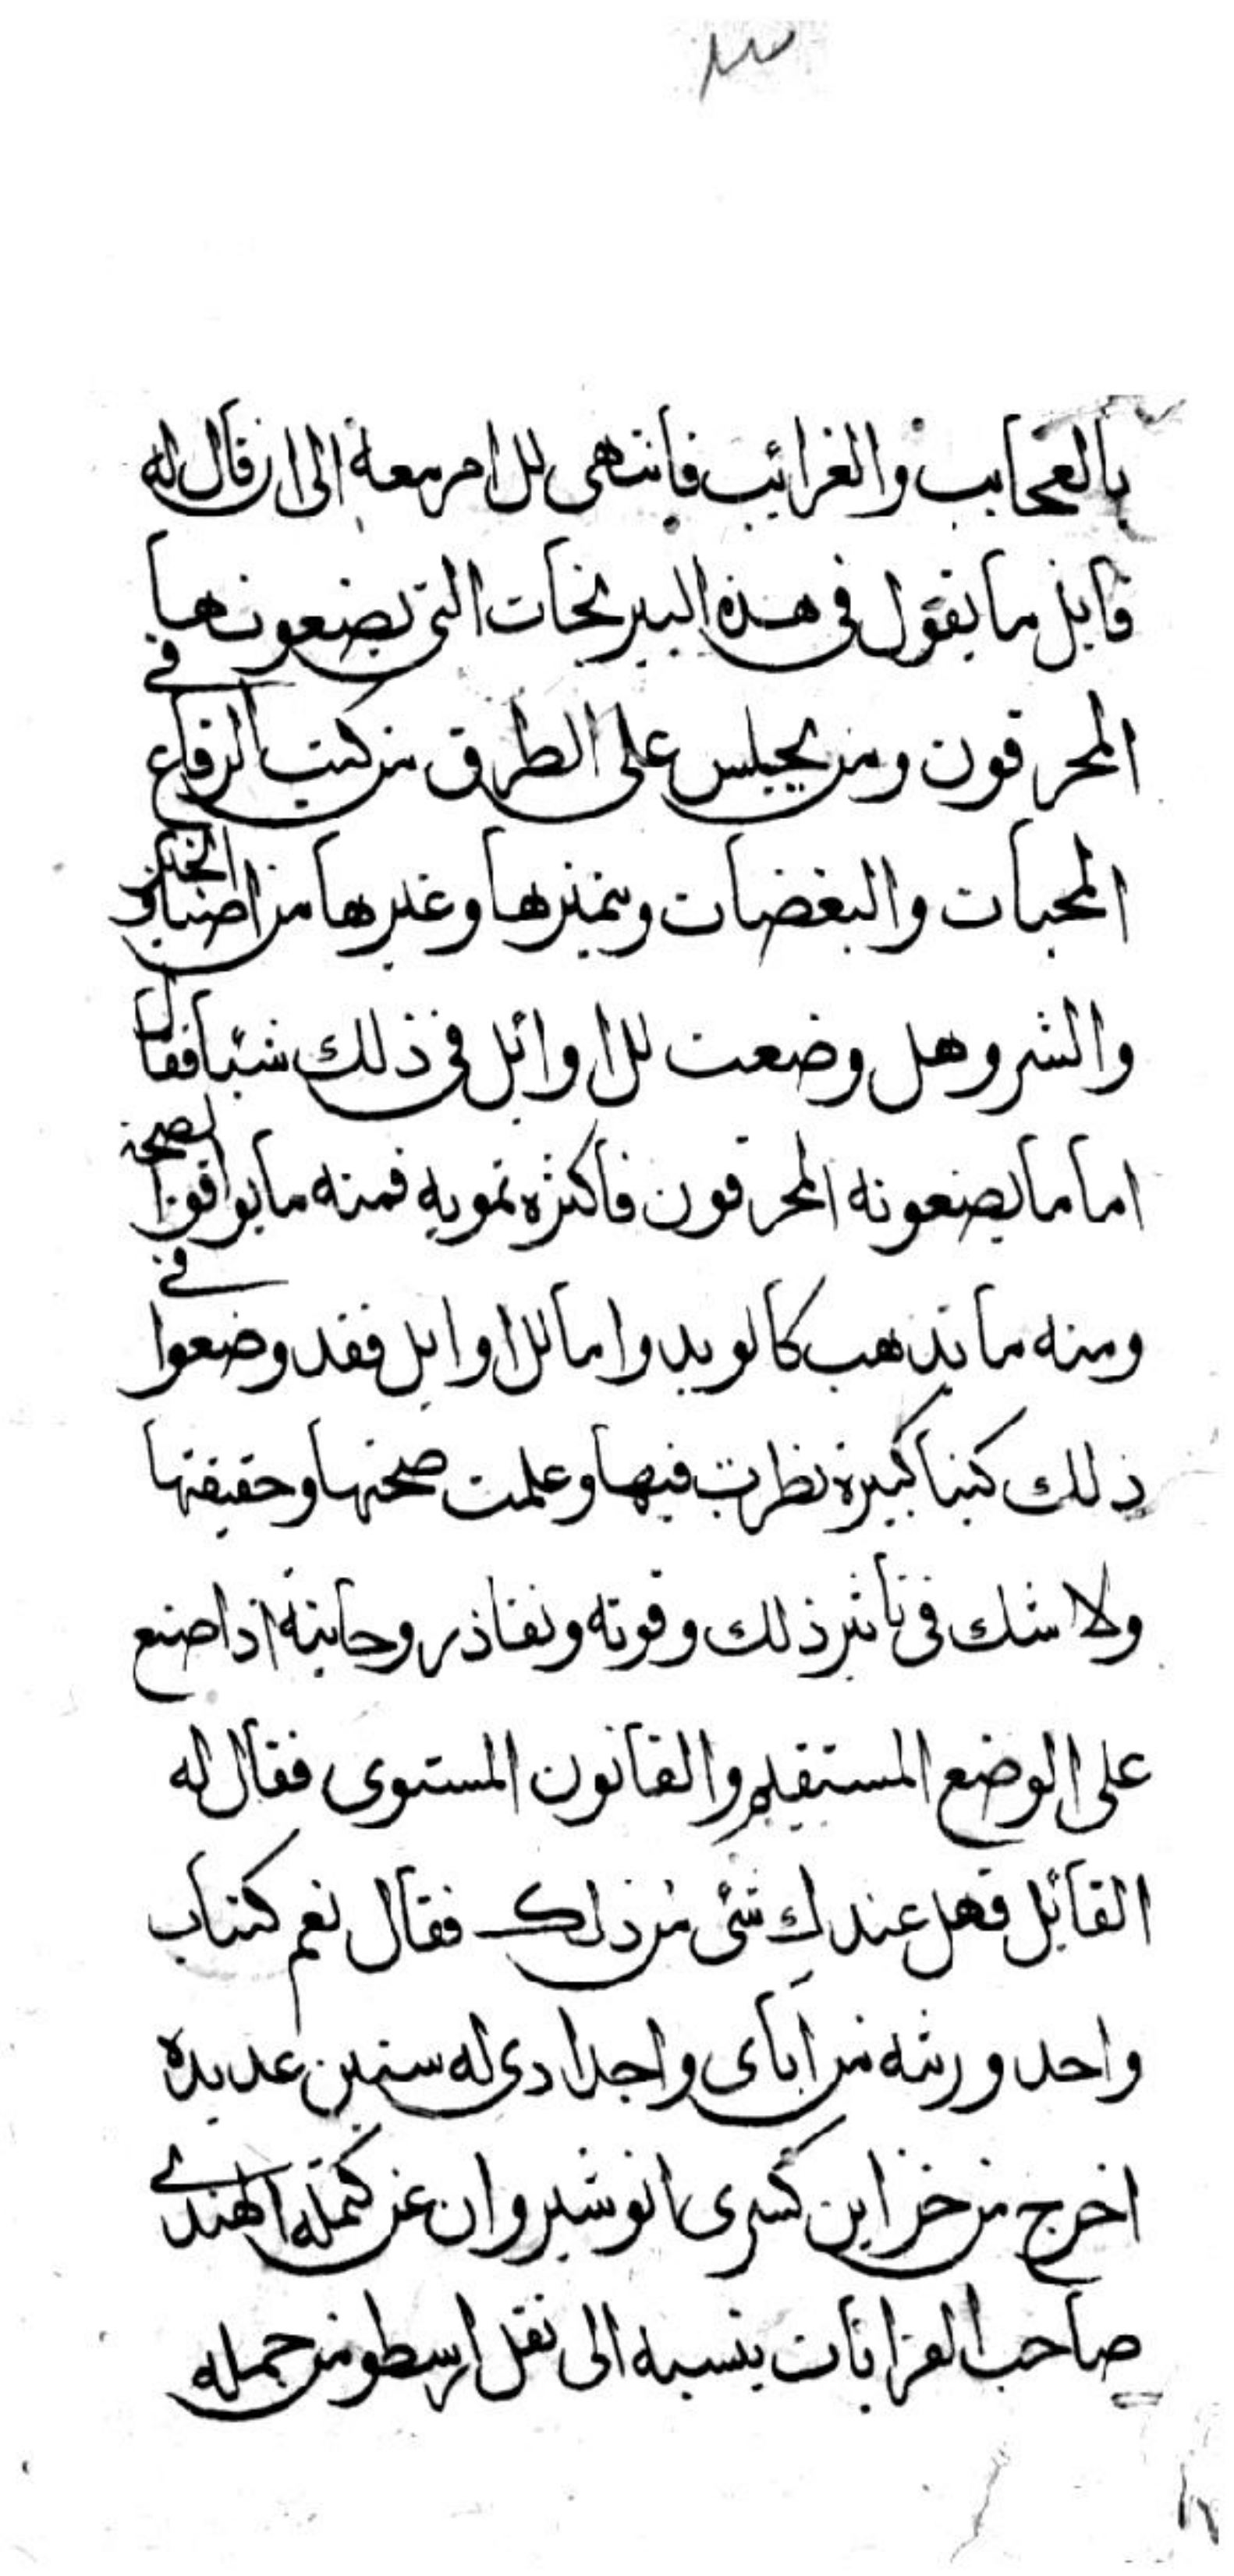 ٣
بالعجايب والغرائب فانتهى الامر معه الى ان قال له
قايل ما يقول في هذه النيرنجات التي يصنعونها
المخرقون ومن يجلس على الطرق من كتب الرقاع في
المحبات والبغضات وتميزها وغيرها من اصناف الخير
والشر وهل وضعت الاوائل في ذلك شيئا فقال
اما ما يصنعونه المخرقون فاكثره تمويه فمنه ما يوافق الصحة
ومنه ما يذهب كالوبد واما الاوايل فقد وضعوا في
ذلك كتبا كبيرة نظرت فيها وعلمت صحتها وحقيقتها
ولا شك في تاثير ذلك وقوته ونفاذ روحانيته اذا صنع
على الوضع المستقيم والقانون المستوى فقال له
القائل فهل عندك شئ من ذلك فقال نعم كتاب
واحد ورثه من اباى واجدادى له سنين عديده
اخرج من خزاين كسرى انوشيروان عن كتمله الهندي
صاحب القرانات ينسبه الى نقل ارسطو من جمله